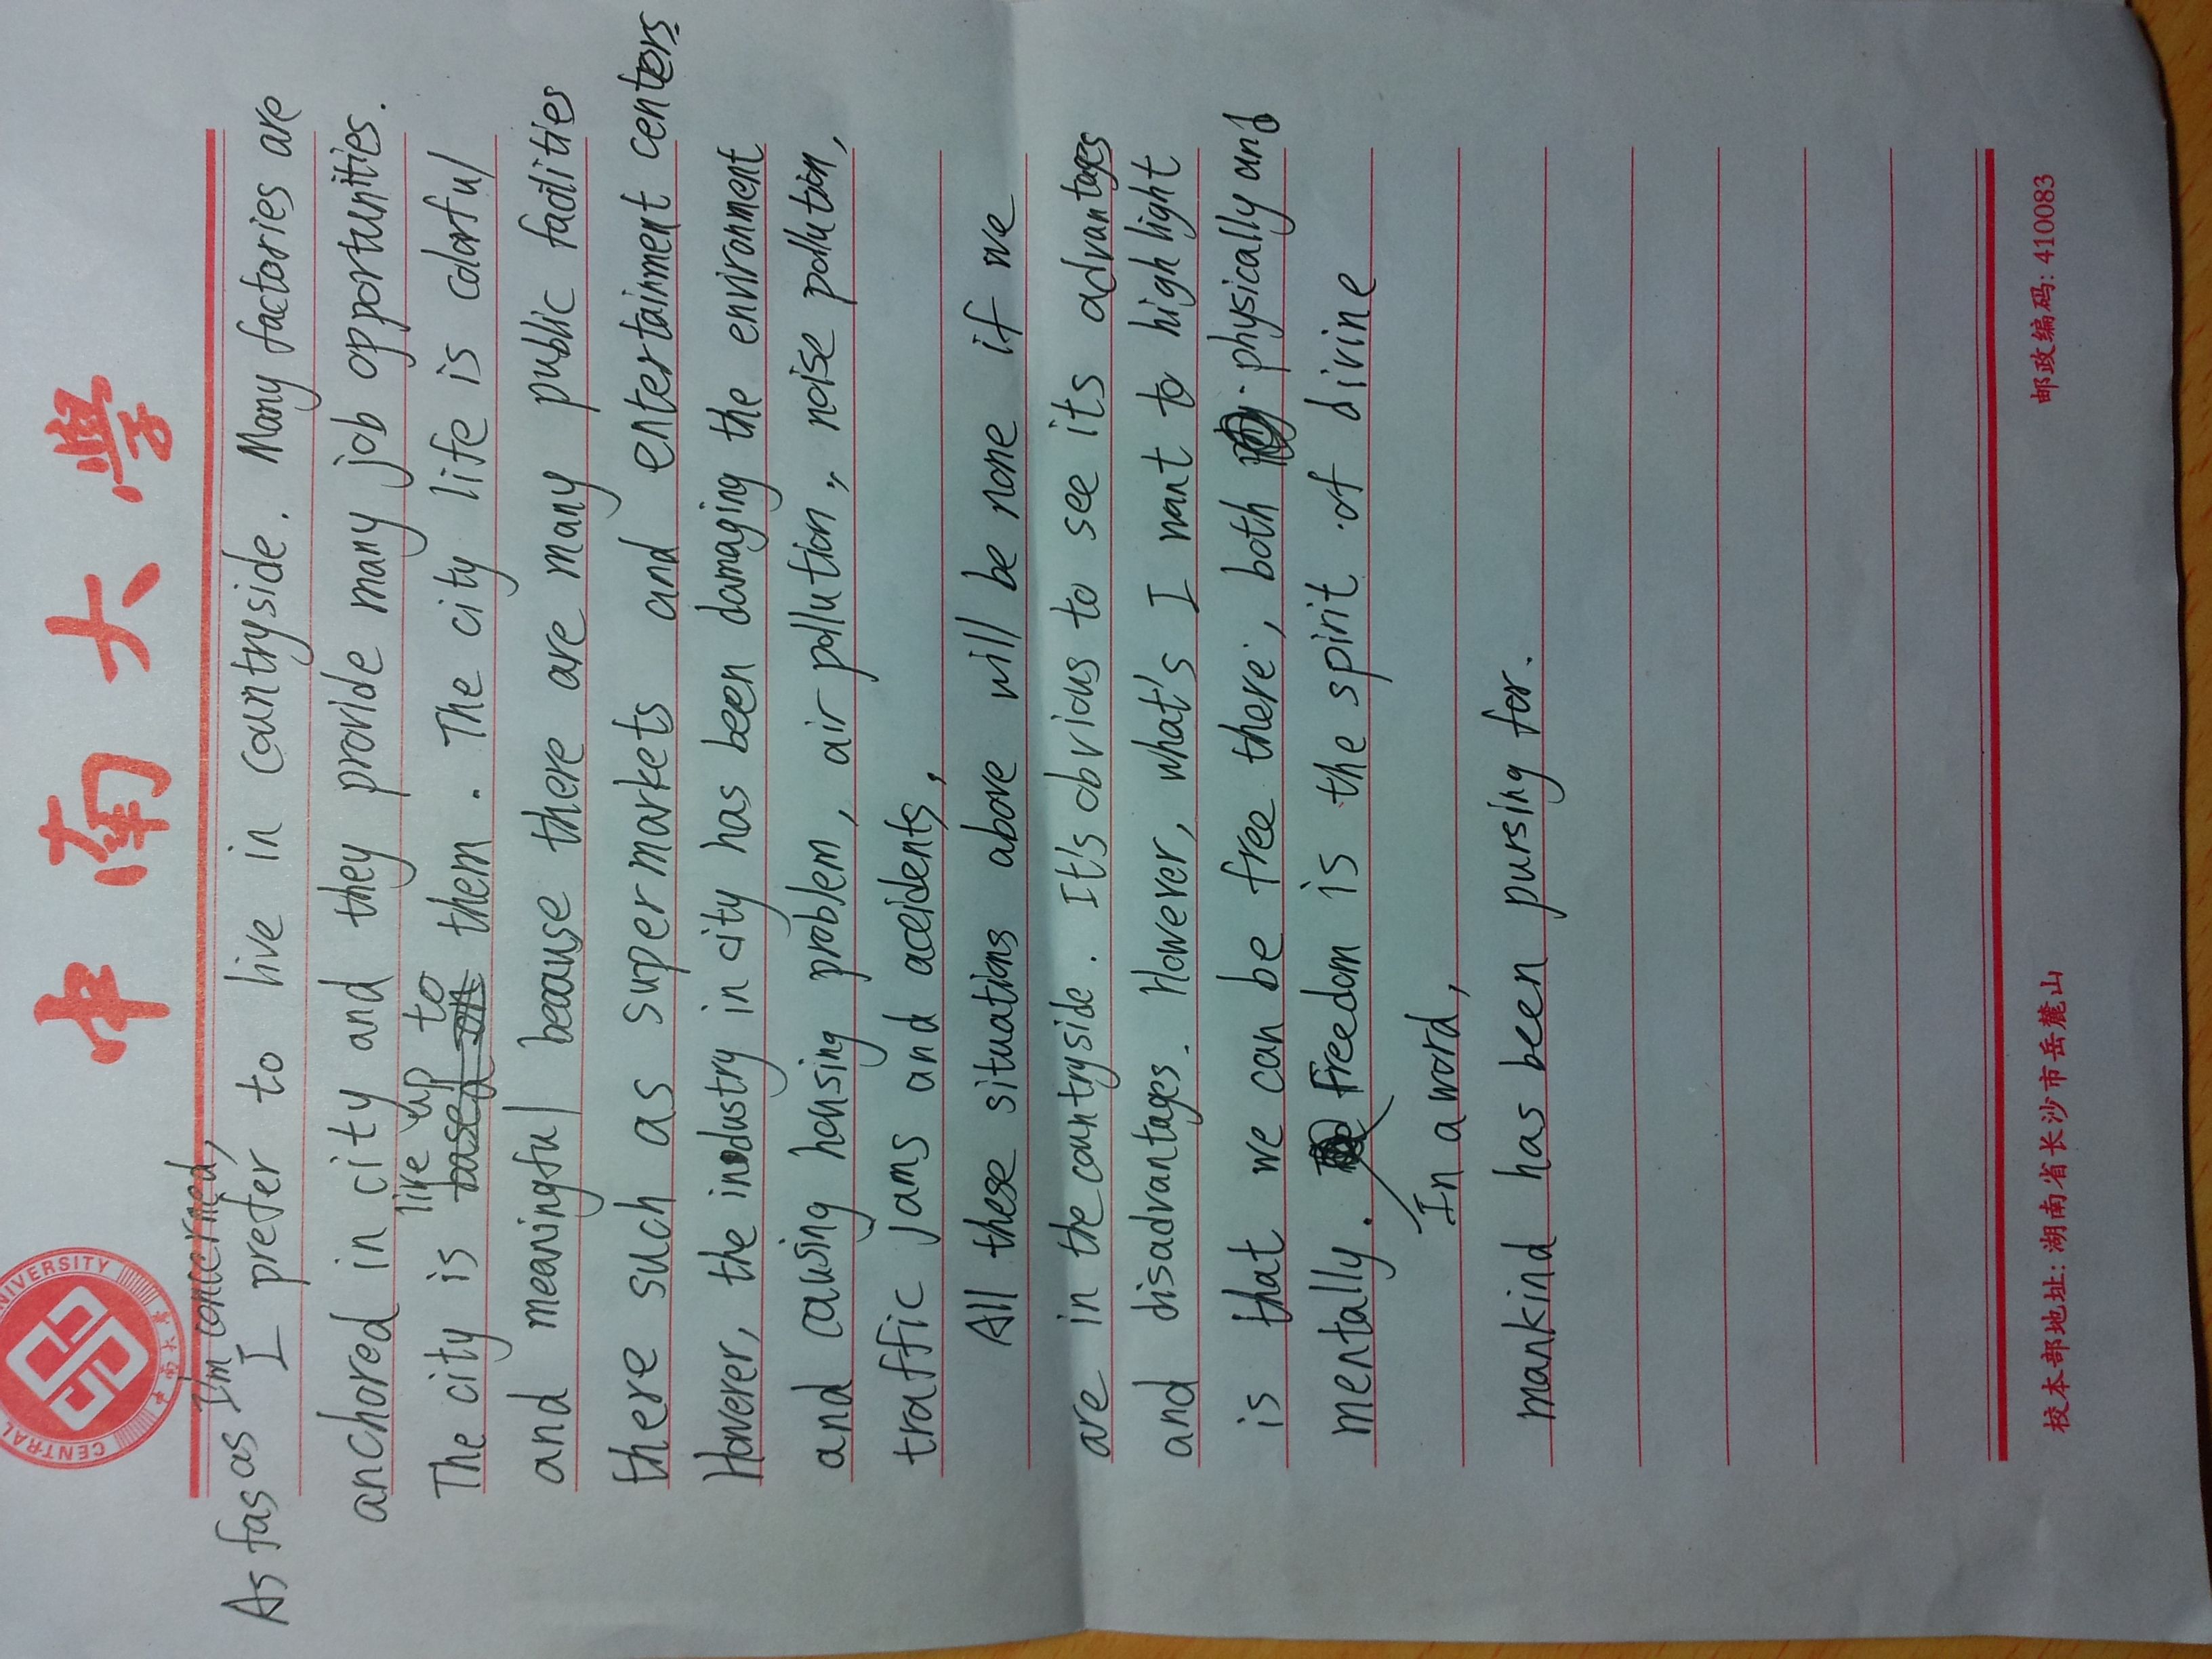 中南大学
CENTRAL
NIVERSITY
As fas as I'm concerned,
I prefer to live in countryside. Many factories are
anchored in city and they provide many job opportunities.
live up to
The city is based on them. The city life is colorful
and meaningful because there are many public facilities
there such as supermarkets and entertainment centers
However, the industry in city has been damaging the environment
and causing housing problem, air pollution, noise pollution,
traffic jams and accidents,
All these situations above will be none if we
are in the countryside. It's obvious to see its advantages
and disadvantages. However, what's I want to high light
is that we can be free there, both physically and
mentally. Freedom is the spirit of divine
In a word,
mankind has been pursing for.
校本部地址: 湖南省长沙市岳麓山 邮政编码: 410083